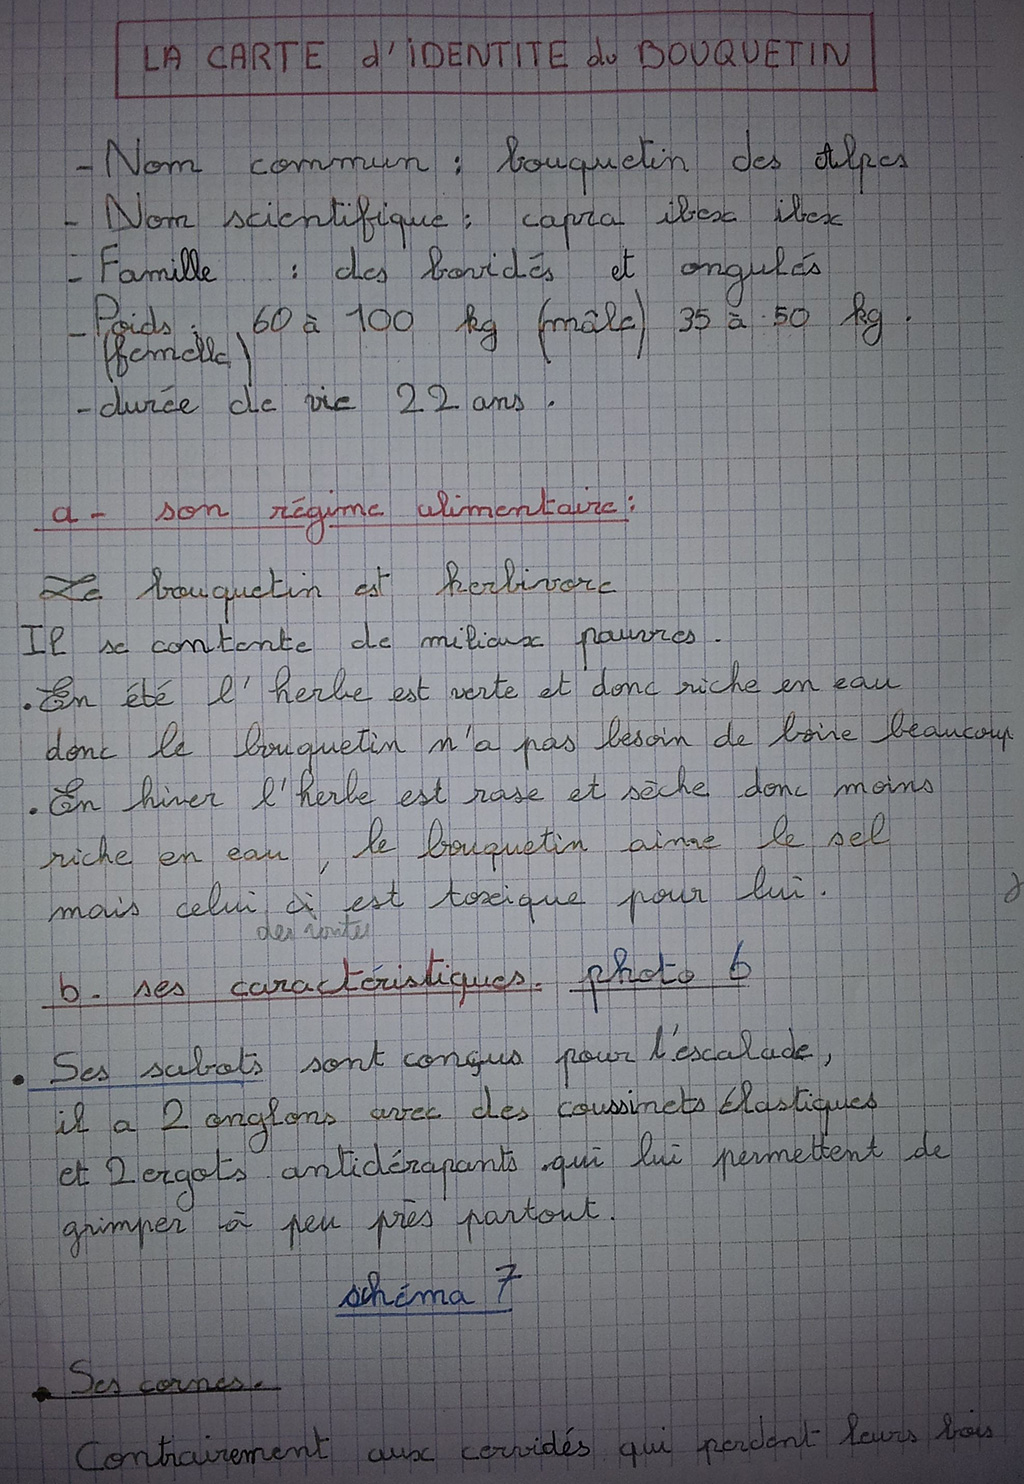 LA CARTE d'IDENTITE du BOUQUETIN
- Nom commun : bouquetin des Alpes
- Nom scientifique : capra ibex ibex
- Famille : des bovidés et ongulés
- Poids : 60 à 100 kg (mâle) 35 à 50 kg.
(femelle)
- durée de vie 22 ans.
a - son régime alimentaire :
Le bouquetin est herbivore
Il se contente de milieux pauvres.
. En été l'herbe est verte et donc riche en eau
donc le bouquetin n'a pas besoin de boire beaucoup
. En hiver l'herbe est rase et sèche donc moins
riche en eau, le bouquetin aime le sel
mais celui ci est toxique pour lui.
des routes
b - ses caractéristiques. photo 6
• Ses sabots sont conçus pour l'escalade,
il a 2 onglons avec des coussinets élastiques
et 2 ergots antidérapants qui lui permettent de
grimper à peu près partout.
schéma 7
• Ses cornes.
Contrairement aux cervidés qui perdent leurs bois